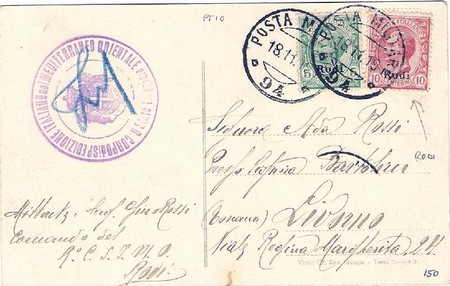 PT10
POSTA MILITARE
18.11.19
94
POSTA MILITARE
18.11.19
94
5
Rodi
10
Rodi
10
CORPO di SPEDIZIONE ITALIANO nel MEDITERRANEO ORIENTALE
Signora Ada Rossi
Bartolini
(Toscana) Livorno
Viale Regina Margherita, 24
RODI
Mittente: Gino Rossi
Comando del
R.º C. S. I. M. O.
Rodi
150